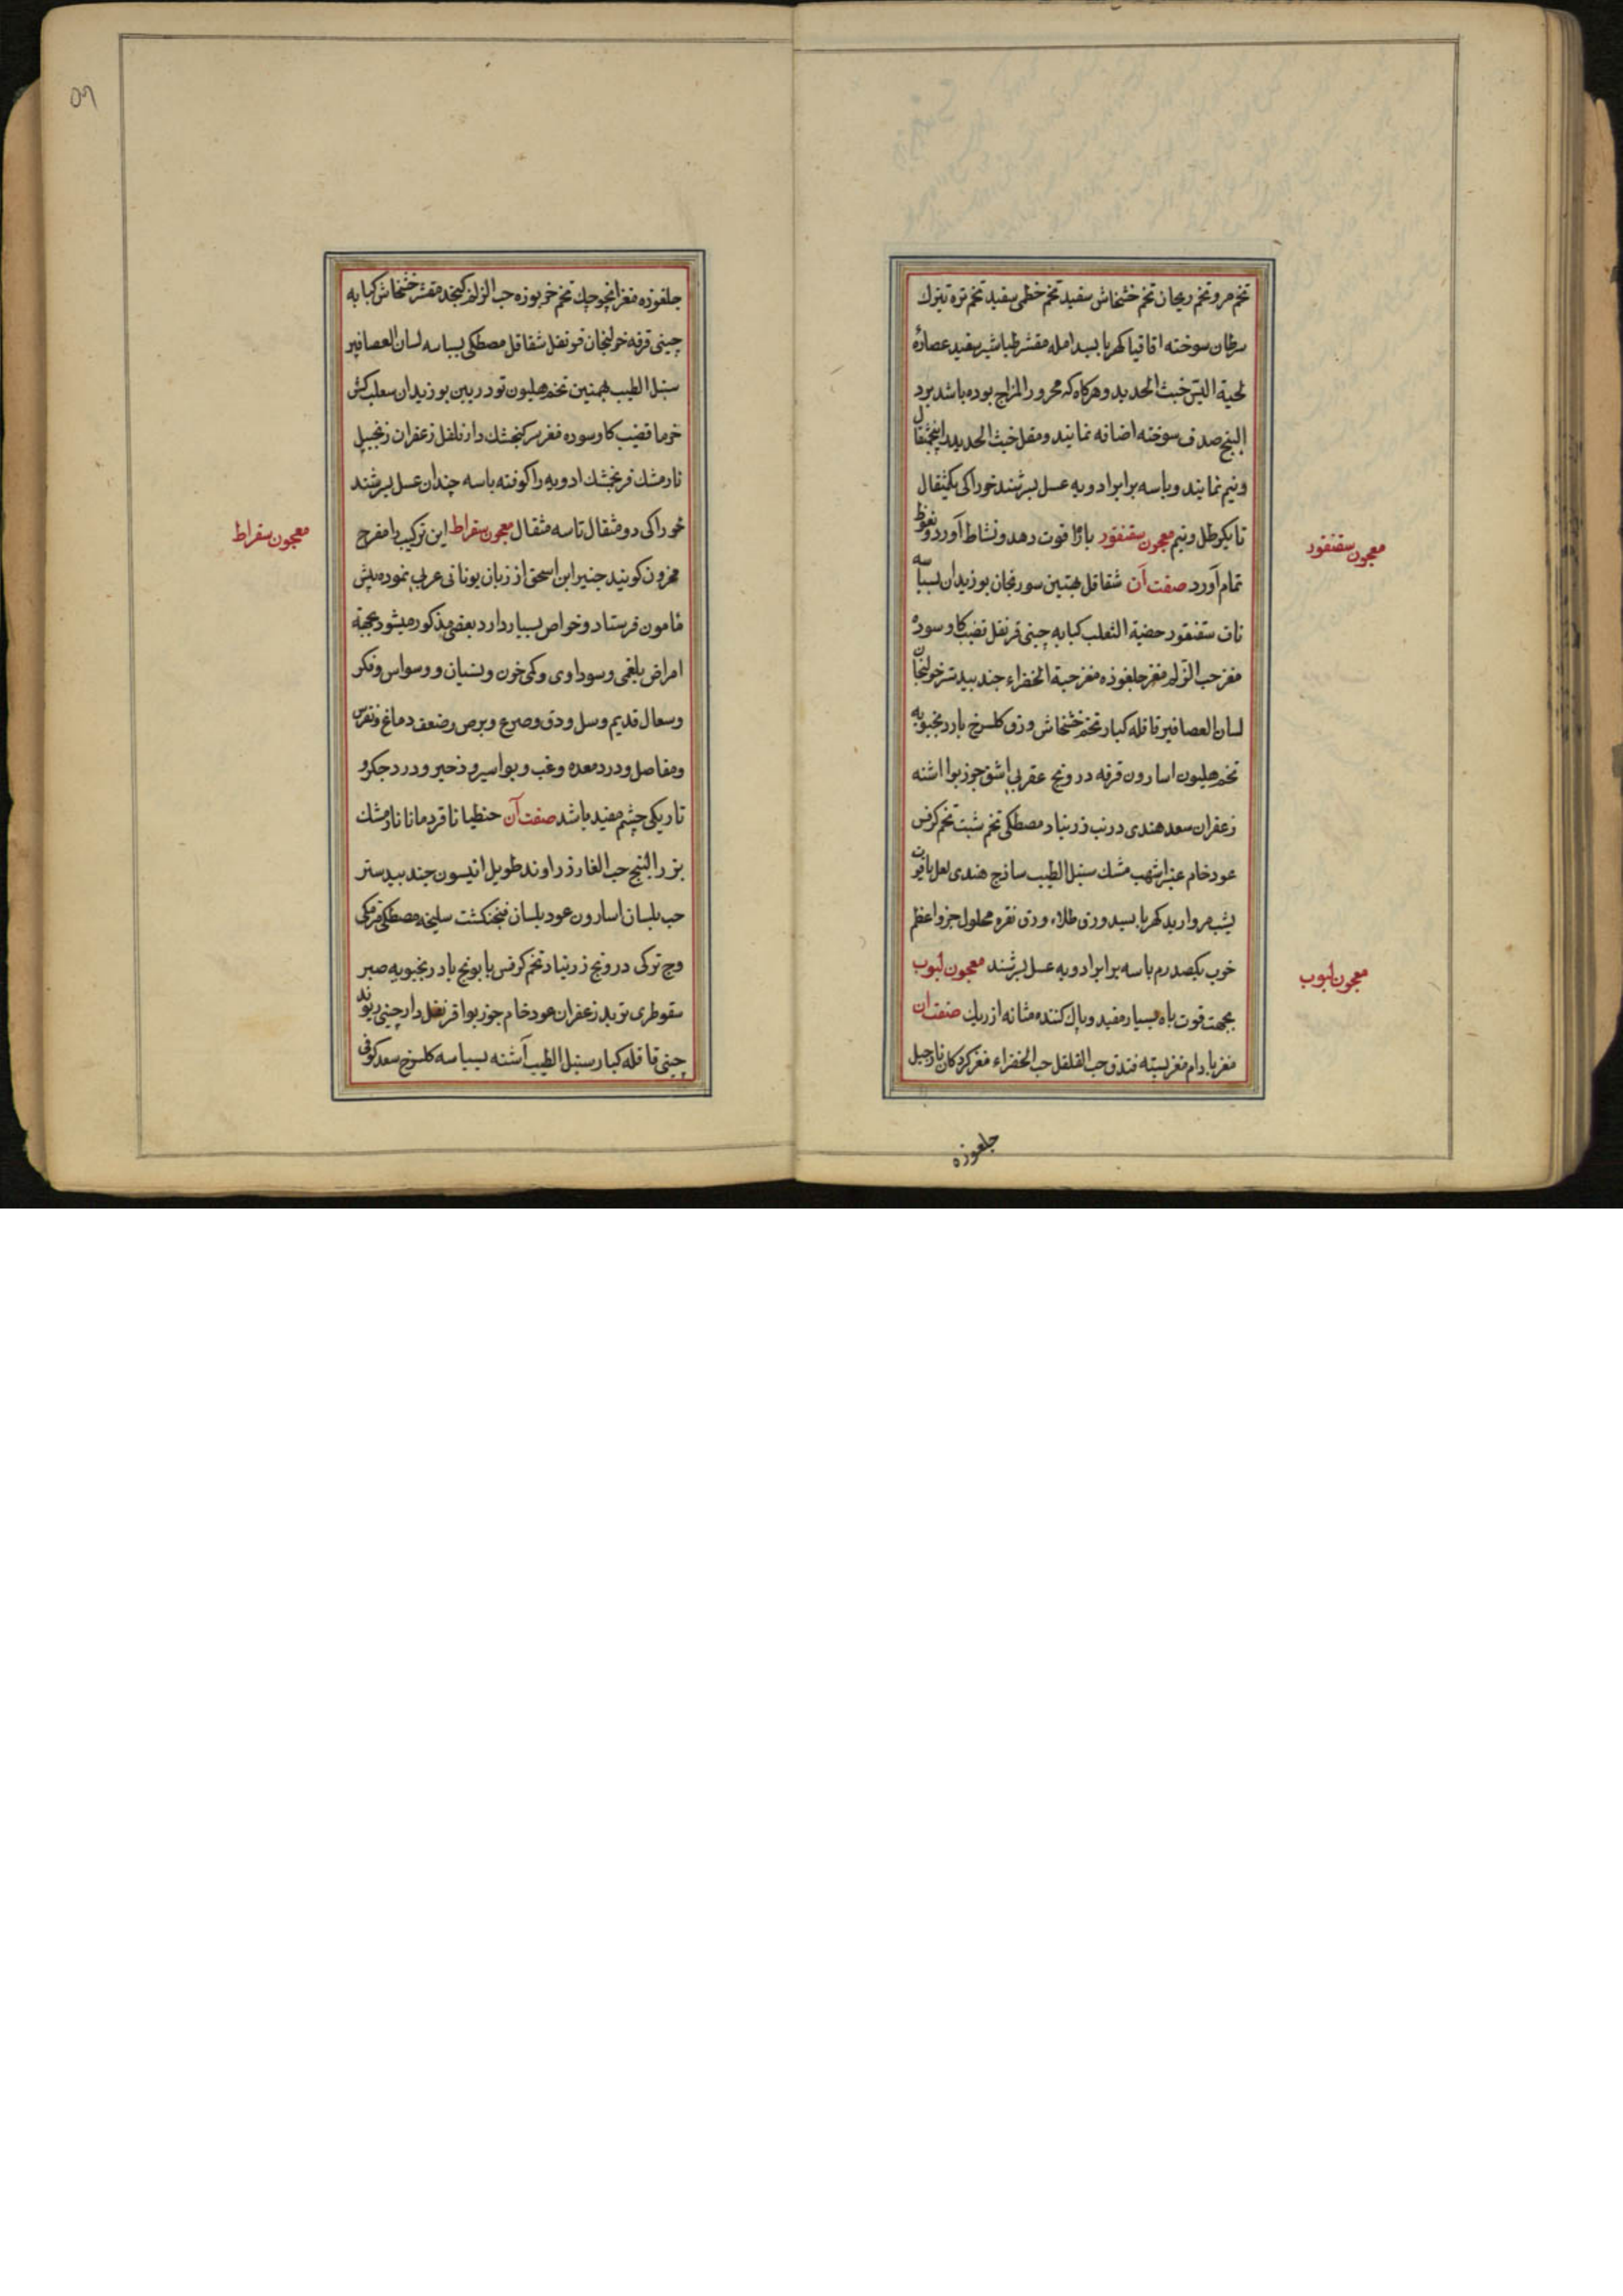 تخم مرو تخم ریحان تخم خشخاش سفید تخم خطمی سفید تخم تره تیزك
سرطان سوخته اقاقیا کهربا بسد امله مقشر طباشیر سفید عصارۀ
لحیة التیس خبث الحدید و هرکاه که محرور المزاج بوده باشد برد
البنج صدف سوخته اضافه نمایند و مقل خبث الحدید را پنجمثقال
ونیم نمایند و باسه برابر ادویه عسل بسرشند خوراکی یکمثقال
تا یکرطل ونیم معجون سقنقور باه را قوت دهد و نشاط آورد و نعوظ
تمام آورد صفت آن شقاقل بهمنین سورنجان بوزیدان بسباسه
ناف سقنقور خصیة الثعلب کبابه چینی قرنفل قضیب کاو سوده
مغز حب الزلم مغز جلغوزه مغز حبة الخضراء جند بیدستر خولنجان
لسان العصافیر قاقله کبار تخم خشخاش ورق کلسرخ بادرنجبویه
تخم هلیون اسارون قرفه درونج عقربی اشق جوزبوا اشنه
زعفران سعد هندی درنب زرنباد مصطکی تخم شبت تخم کرفس
عود خام عنبر اشهب مشك سنبل الطیب ساذج هندی لعل یاقوت
یشب مروارید کهربا بسد ورق طلاء ورق نقره محلول جزو اعظم
خوب یکصد درم باسه برابر ادویه عسل بسرشند معجون لبوب
بجهت قوت باه بسیار مفید و پاك کننده مثانه از ریك صفت ان
مغز بادام مغز پسته فندق حب القلقل حب الخضراء مغز کردکان نارجیل
معجون سقنقور
معجون لبوب
جلغوزه
جلغوزه مغز انجوچك تخم خربوزه حب الزلم کنجد مقشر خشخاش کبابه
چینی قرفه خولنجان قرنفل شقاقل مصطکی بسباسه لسان العصافیر
سنبل الطیب بهمنین تخم هلیون تودریین بوزیدان سعلب کش
خرما قضیب کاو سوده مغز سر کنجشك دارفلفل زعفران زنجبیل
نارمشك فرنجمشك ادویه را کوفته باسه چندان عسل بسرشند
خوراکی دو مثقال تاسه مثقال معجون سقراط این ترکیب را مفرح
محزون کویند جنیر ابن اسحق از زبان یونانی عربی نموده پیش
مامون فرستاد و خواص بسیار دارد بعضی مذکور میشود بجهة
امراض بلغمی و سوداوی و کمی خون و نسیان و وسواس و فکر
وسعال قدیم و سل و دق و صرع و برص و ضعف دماغ و نقرس
و مفاصل و درد معده و غب و بواسیر و زحیر و درد جکر و
تاریکی چشم مفید باشد صفت آن حنطیانا قردمانا نارمشك
بزر البنج حب الغار زراوند طویل انیسون جند بیدستر
حب بلسان اسارون عود بلسان فنجنکشت سلیخه مصطکی قرمکی
وج ترکی درونج زرنباد تخم کرفس بابونج بادرنجبویه صبر
سقوطری تربد زعفران عود خام جوزبوا قرنفل دارچینی ریوند
چینی قاقله کبار سنبل الطیب آشنه بسباسه کلسرخ سعد کوفی
معجون سقراط